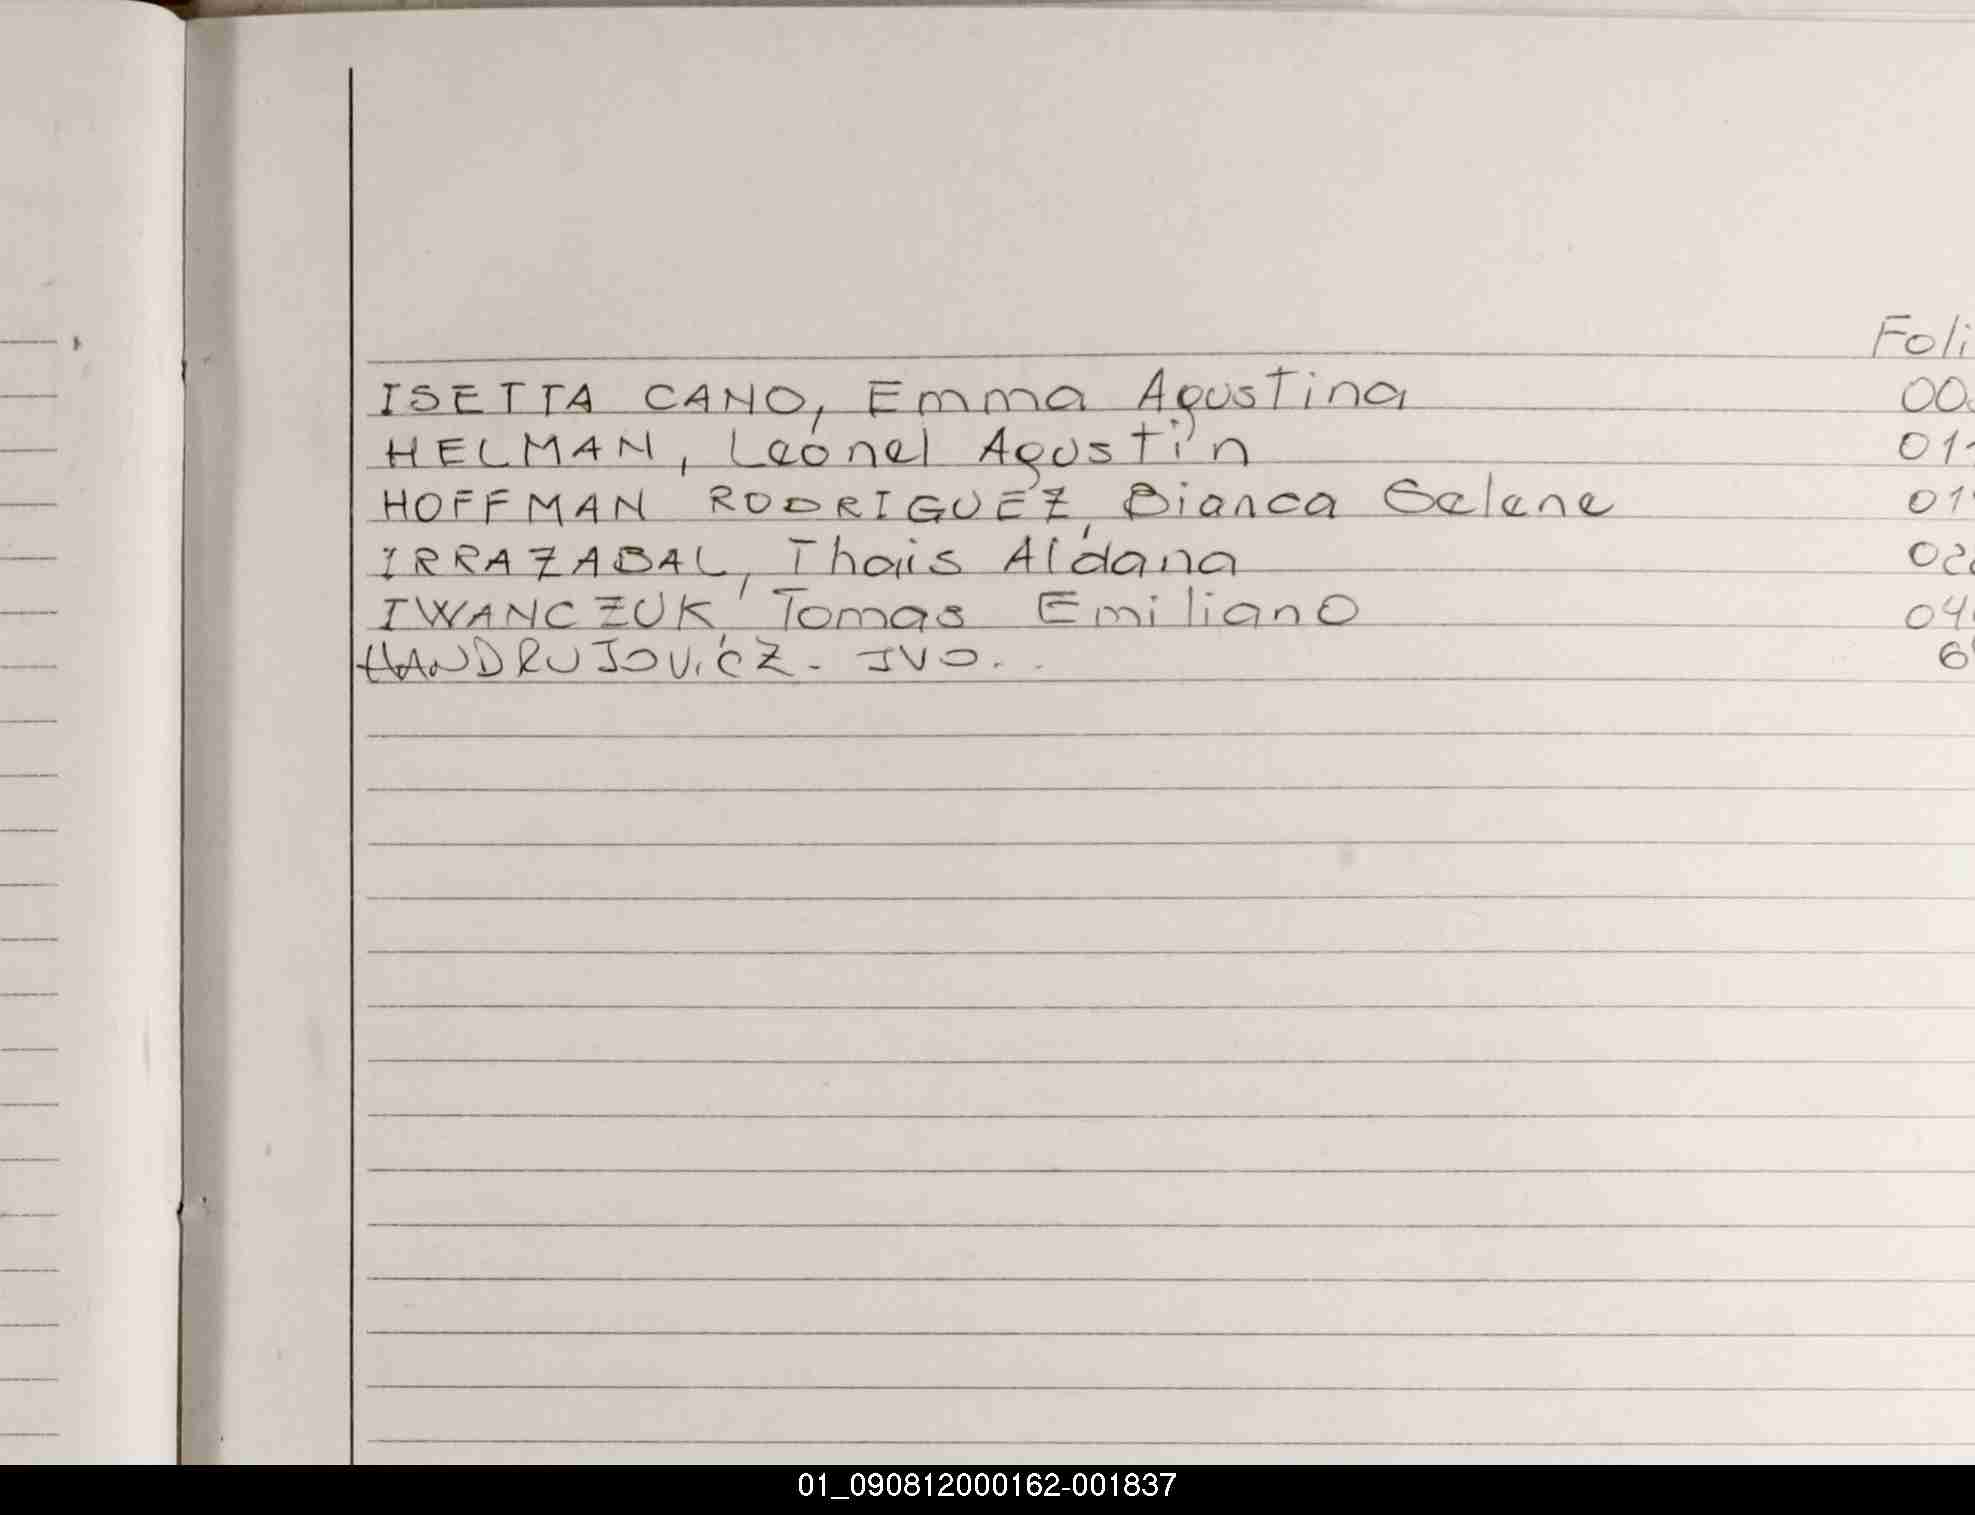 Foli
ISETTA CANO, Emma Agustina 00
HELMAN, Leonel Agustín 01
HOFFMAN RODRIGUEZ, Bianca Selene 01
IRRAZABAL, Thais Aldana 02
IWANCZUK, Tomas Emiliano 04
HANDRUJOVICZ. IVO. . 6
01_090812000162-001837